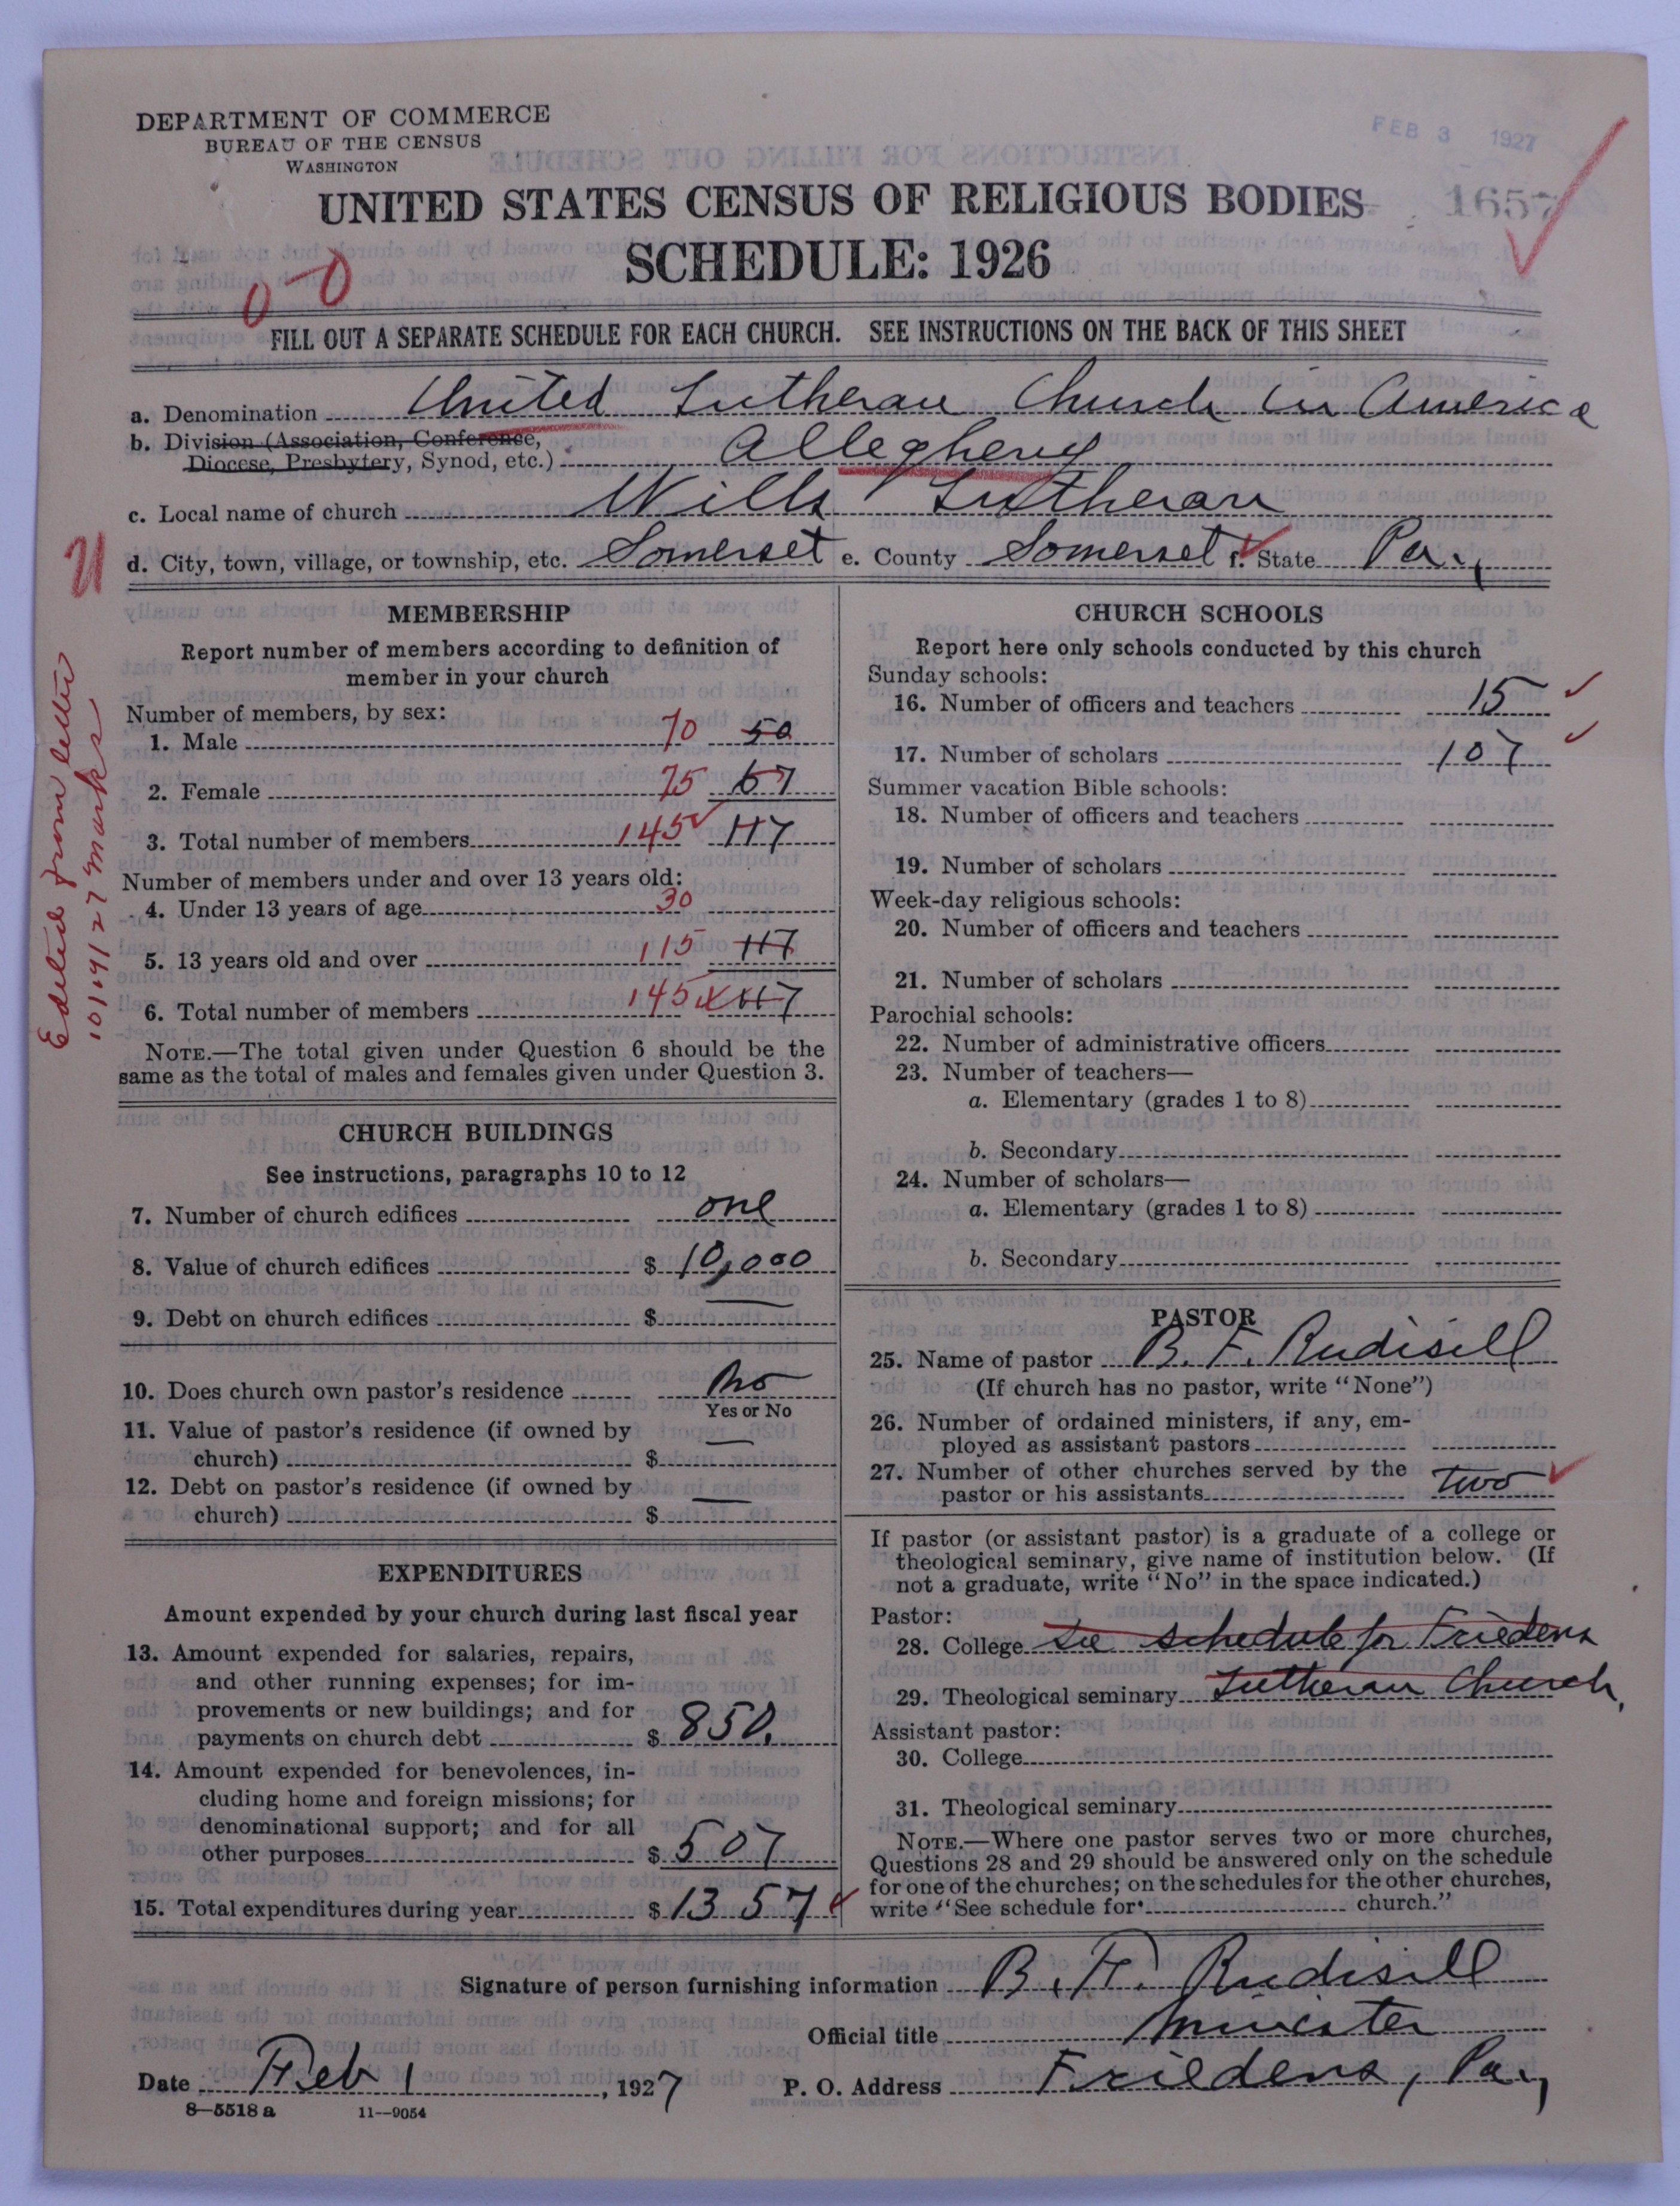 DEPARTMENT OF COMMERCE
BUREAU OF THE CENSUS
WASHINGTON
FEB 3 1927
1657
UNITED STATES CENSUS OF RELIGIOUS BODIES
SCHEDULE: 1926
0-0
FILL OUT A SEPARATE SCHEDULE FOR EACH CHURCH. SEE INSTRUCTIONS ON THE BACK OF THIS SHEET
a. Denomination United Lutheran Church in America
b. Division (Association, Conference,
Diocese, Presbytery, Synod, etc.) Allegheny
c. Local name of church Wills Lutheran
d. City, town, village, or township, etc. Somerset e. County Somerset f. State Pa.,
Edited from letter
10/.41/27 Marks
MEMBERSHIP
Report number of members according to definition of
member in your church
Number of members, by sex:
1. Male 70 50
2. Female 75 67
3. Total number of members 145 117
Number of members under and over 13 years old:
4. Under 13 years of age 30
5. 13 years old and over 115 117
6. Total number of members 145 117
NOTE.—The total given under Question 6 should be the
same as the total of males and females given under Question 3.
CHURCH BUILDINGS
See instructions, paragraphs 10 to 12
7. Number of church edifices one
8. Value of church edifices $ 10,000
9. Debt on church edifices $ —
10. Does church own pastor's residence No
Yes or No
11. Value of pastor's residence (if owned by
church) $ —
12. Debt on pastor's residence (if owned by
church) $ —
EXPENDITURES
Amount expended by your church during last fiscal year
13. Amount expended for salaries, repairs,
and other running expenses; for im-
provements or new buildings; and for
payments on church debt $ 850.
14. Amount expended for benevolences, in-
cluding home and foreign missions; for
denominational support; and for all
other purposes $ 507
15. Total expenditures during year $ 1357
CHURCH SCHOOLS
Report here only schools conducted by this church
Sunday schools:
16. Number of officers and teachers 15
17. Number of scholars 107
Summer vacation Bible schools:
18. Number of officers and teachers
19. Number of scholars
Week-day religious schools:
20. Number of officers and teachers
21. Number of scholars
Parochial schools:
22. Number of administrative officers
23. Number of teachers—
a. Elementary (grades 1 to 8)
b. Secondary
24. Number of scholars—
a. Elementary (grades 1 to 8)
b. Secondary
PASTOR
25. Name of pastor B. F. Rudisill
(If church has no pastor, write "None")
26. Number of ordained ministers, if any, em-
ployed as assistant pastors
27. Number of other churches served by the
pastor or his assistants two
If pastor (or assistant pastor) is a graduate of a college or
theological seminary, give name of institution below. (If
not a graduate, write "No" in the space indicated.)
Pastor:
28. College See schedule for Friedens
29. Theological seminary Lutheran Church.
Assistant pastor:
30. College
31. Theological seminary
NOTE.—Where one pastor serves two or more churches,
Questions 28 and 29 should be answered only on the schedule
for one of the churches; on the schedules for the other churches,
write "See schedule for church."
Signature of person furnishing information B. F. Rudisill
Official title Minister
Date Feb 1, 1927 P. O. Address Friedens, Pa.,
8—5518 a 11—9054